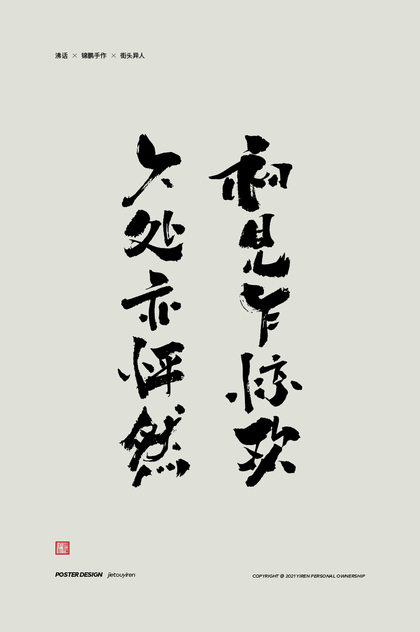 沸话 × 锦鹏手作 × 街头异人
初见乍惊欢
久处亦怦然
POSTER DESIGN jietouyiren
COPYRIGHT @ 2021 YIREN PERSONAL OWNERSHIP